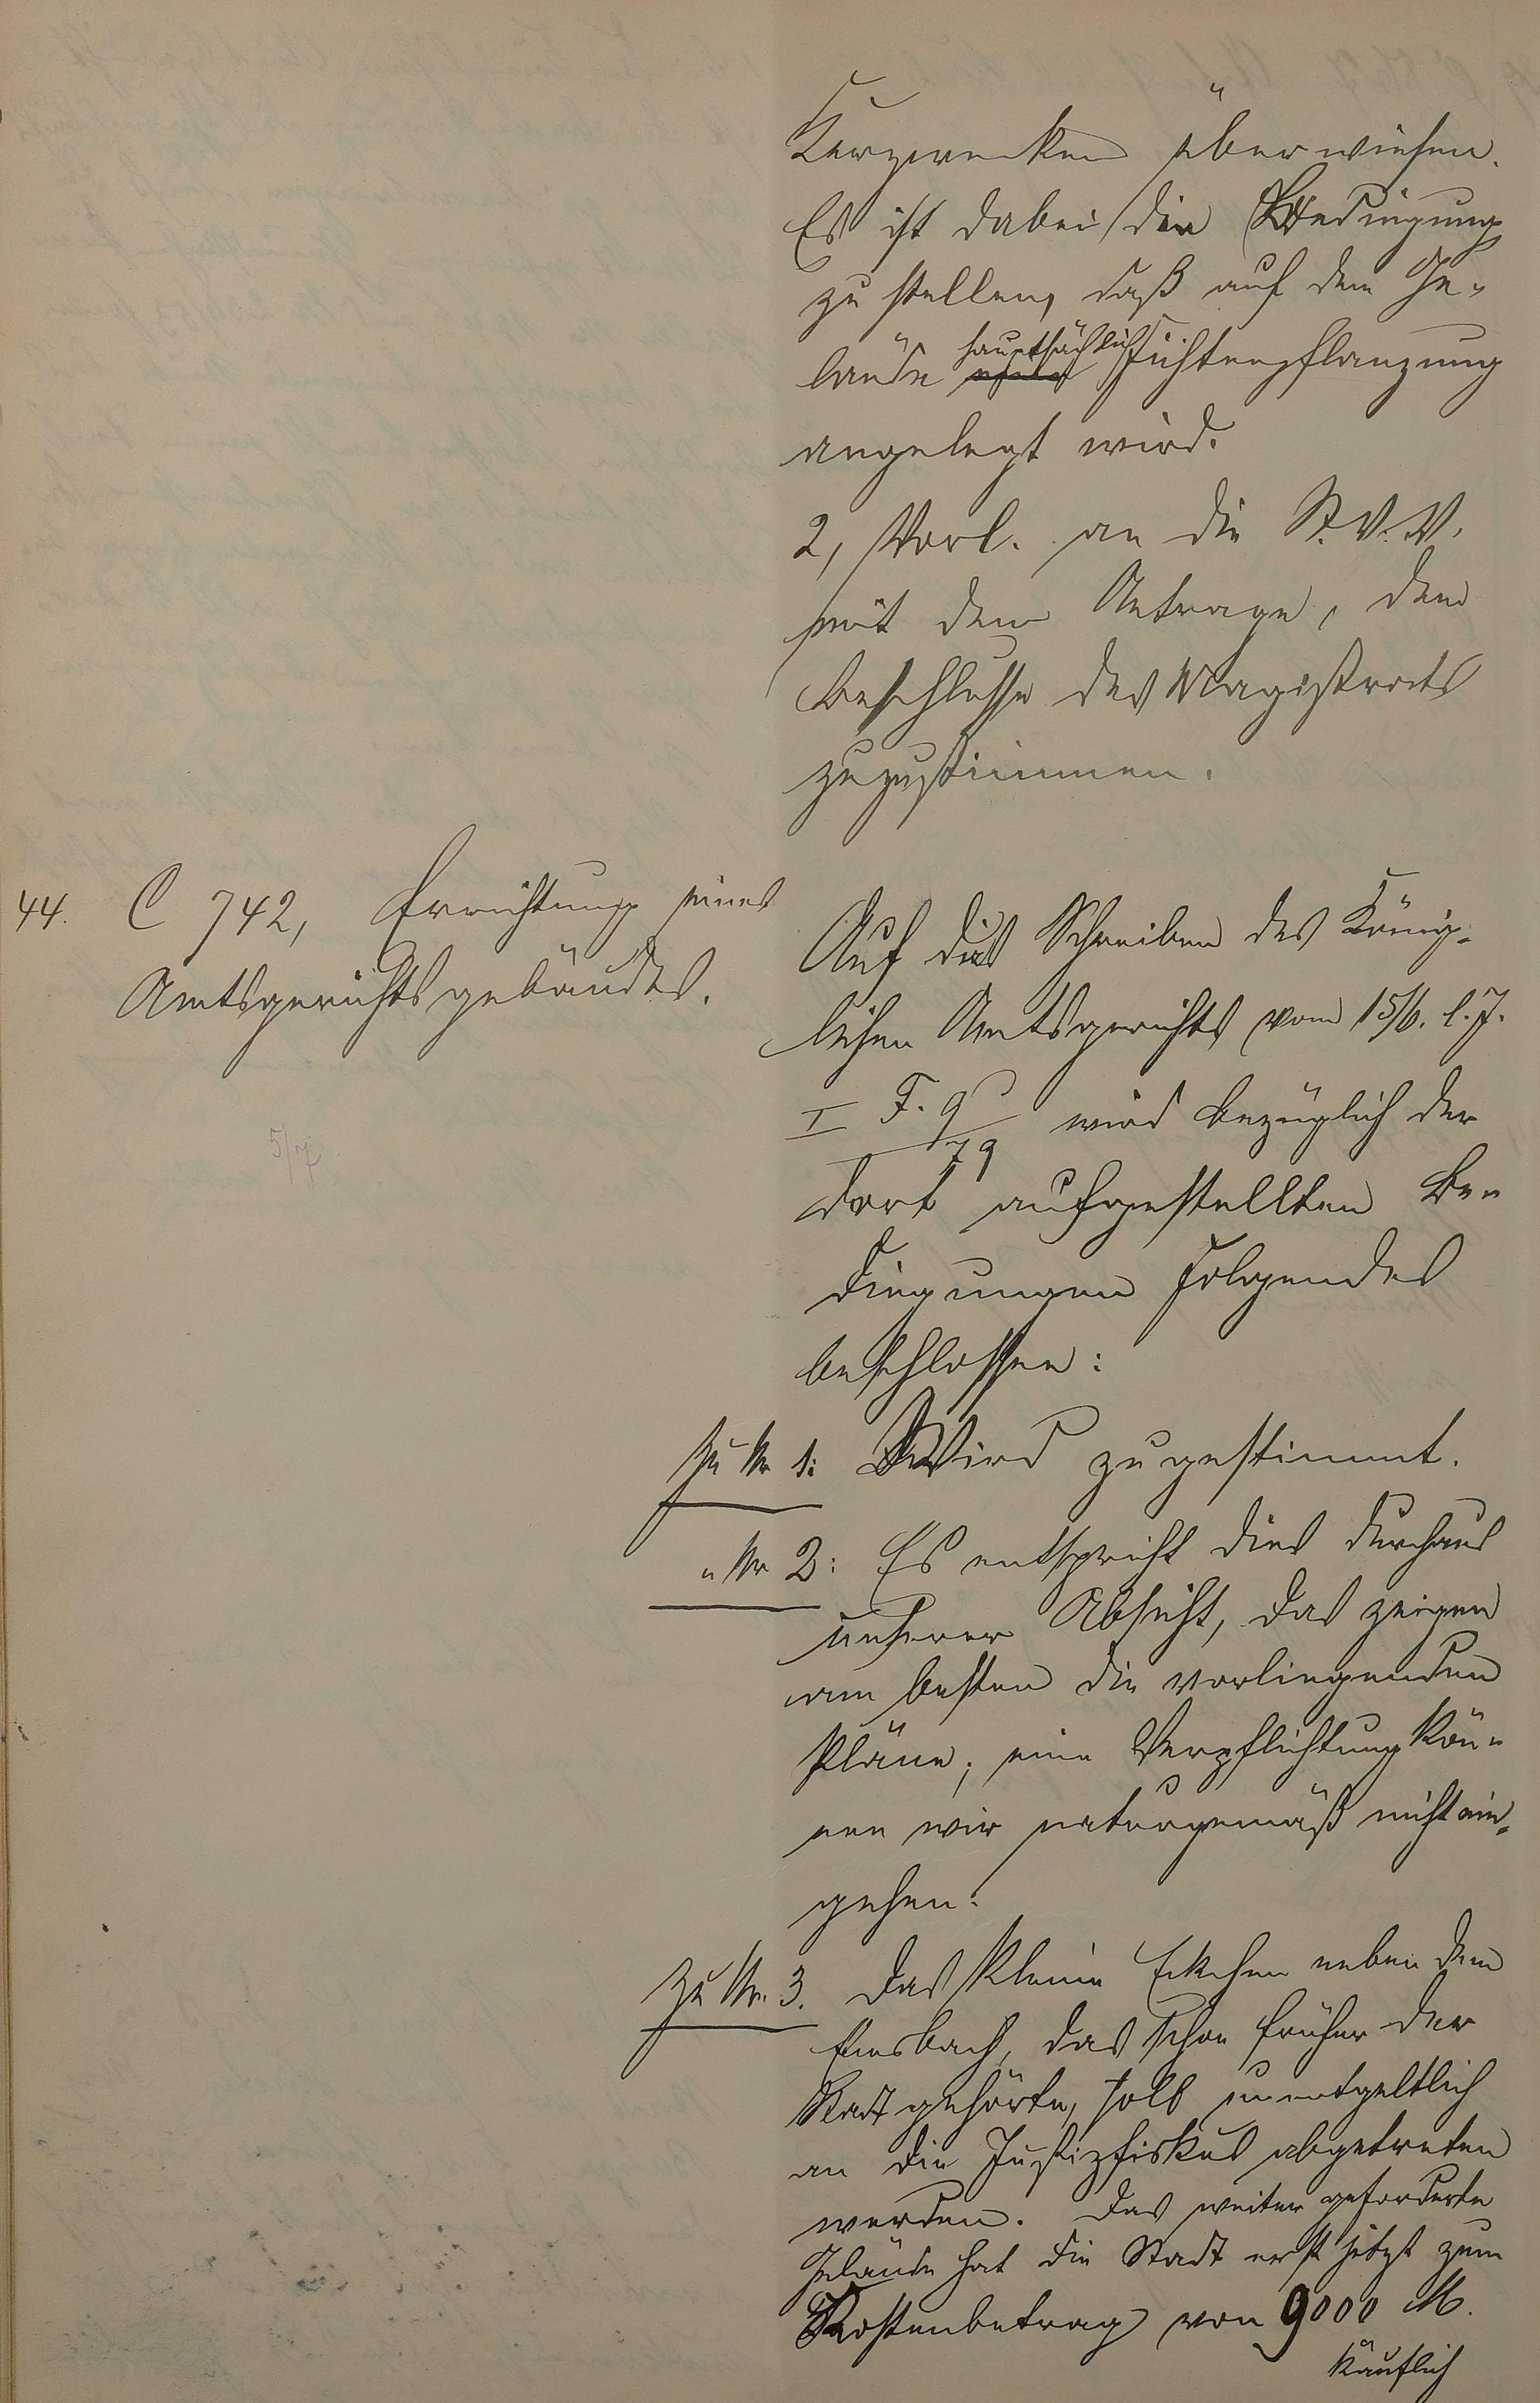 Kurzwecken überwiesen.
Es ist dabei die Bedingung
zu stellen, daß auf dem Ge-
lände hauptsächlich Fichtenpflanzung
angelegt wird.
2, Vorl. an die St. V. V.
mit dem Antrage, dem
Beschlusse des Magistrats
zuzustimmen.
44. C 742, Errichtung eines
Amtsgerichtsgebäudes.
5/7
Auf das Schreiben des König-
lichen Amtsgerichts vom 15/6. l. J.
I F. 9/79 wird bezüglich der
dort aufgestellten Be-
dingungen Folgendes
beschlossen:
Zu Nr 1: Wird zugestimmt.
" Nr 2: Es entspricht dies durchaus
unserer Absicht, das zeigen
am besten die vorliegenden
Pläne; eine Verpflichtung kön-
nen wir naturgemäß nicht ein-
gehen.
Zu Nr. 3. Das kleine Eckchen neben dem
Emsbach, das schon früher der
Stadt gehörte, soll unentgeltlich
an die Justizfiskus abgetreten
werden. Das weiter geforderte
Gelände hat die Stadt erst jetzt zum
Kostenbetrag von 9000 M.
käuflich